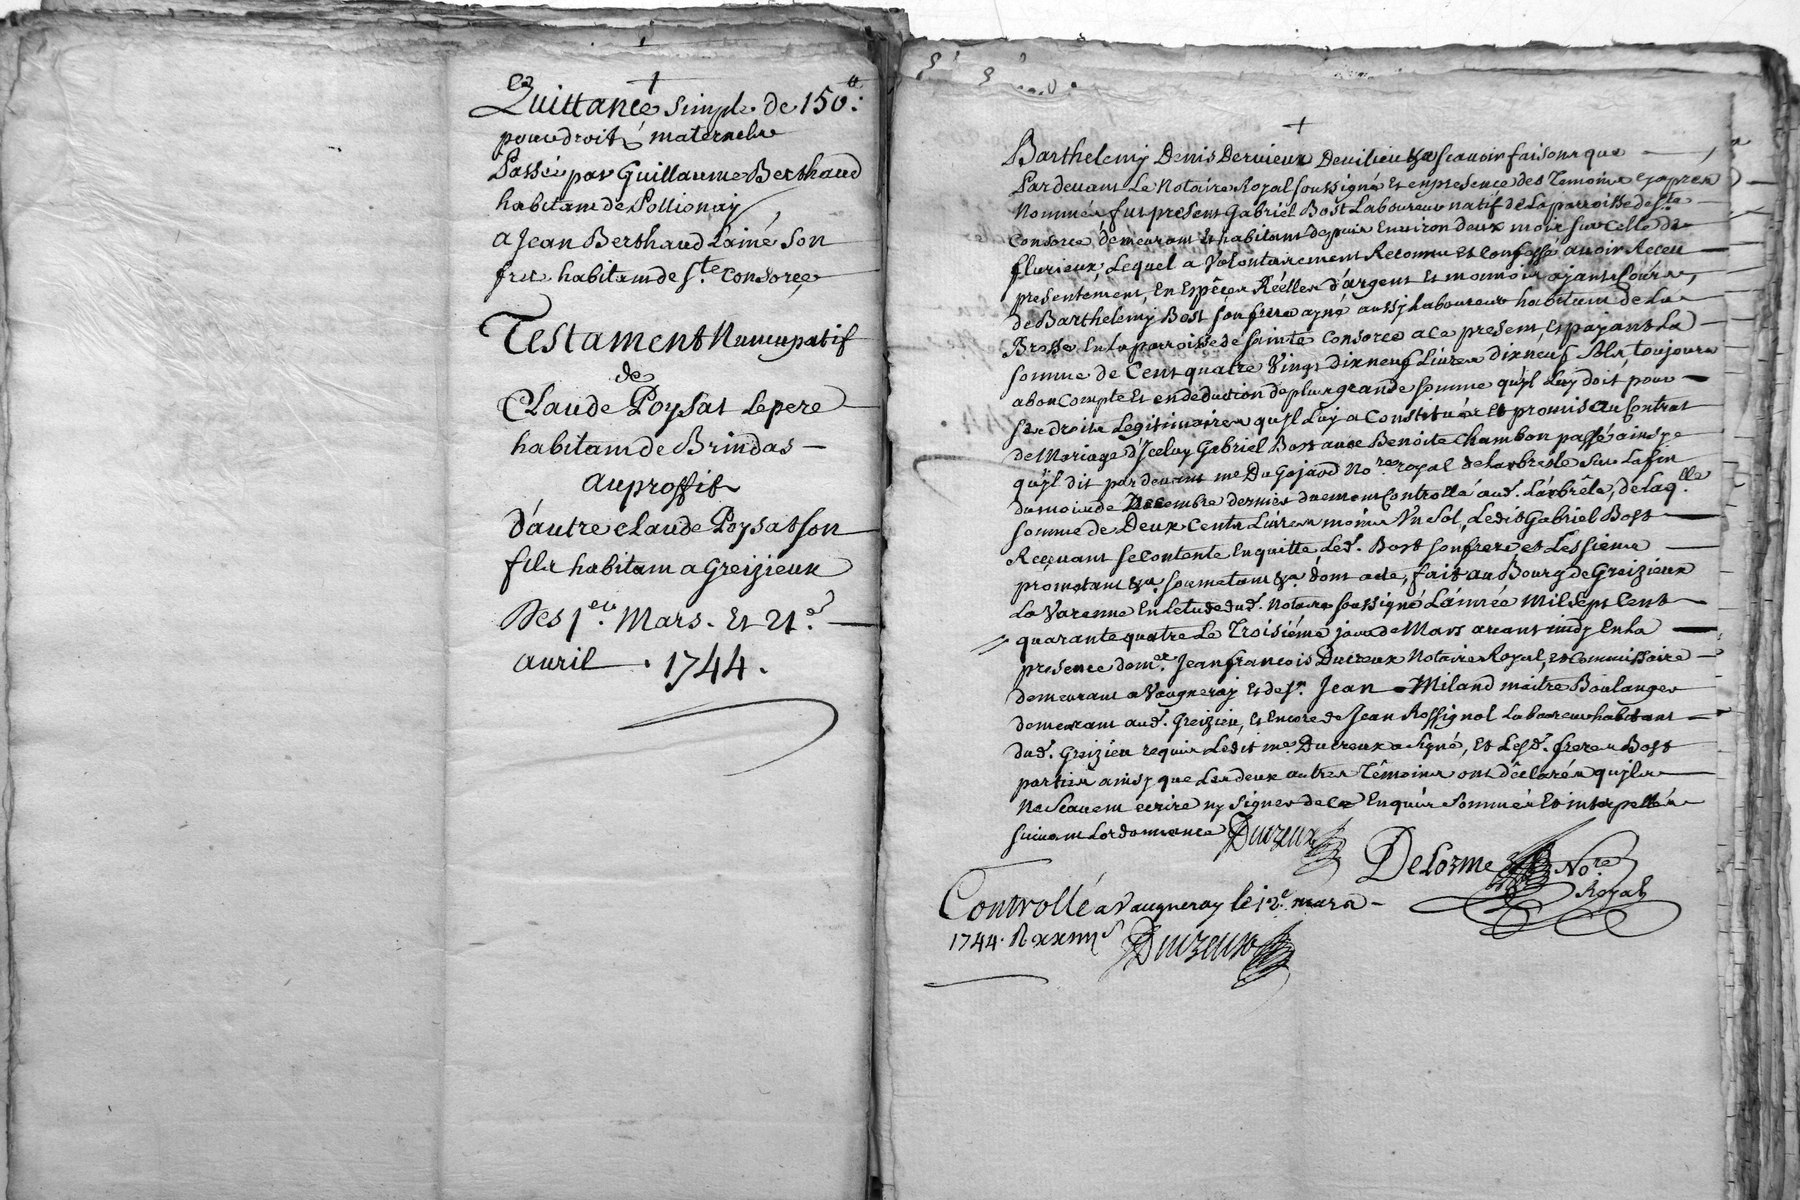 Quittance simple de 150ᵗᵗ:
pour droits maternelse
Passée par Guillaume Berthaud
habitant de Pollionay
a Jean Berthaud Lainé son
frere habitant de Ste. Consorce
Testament Nuncupatif
de
Claude Poysat Le pere
habitant de Brindas –
au proffit
d'autre Claude Poysat son
fils habitant a Greizieux
Des 1er. Mars. Et 21e.
avril . 1744.
Barthelemy Denis Dervieux Devilieu &a scavoir faisons que
Pardevant Le Notaire Royal soussigné Et en presence des Temoins cy apres
Nommés fut present Gabriel Bost Laboureur natif de La parroisse de Ste
Consorce, demeurant Et habitant depuis Environ deux mois sur Celle de
flurieux, Lequel a Volontairement Reconnu Et Confessé avoir Receu
presentement, En Especes Réelles d'argent Et monnoie ayant Cours,
de Barthelemy Bost son frere ayné aussy Laboureur habitant de La
Brosse En La parroisse de Sainte Consorce a ce present, Et payant La
somme de Cent quatre Vingt dix neuf Livres dix neuf Sols, toujours
a bon Compte Et en déduction de plus grande somme qu'jl Luy doit pour
ses droits Legitimaires qu'jl Luy a Constitués Et promis au Contrat
de Mariage d'Jceluy Gabriel Bost avec Benoite Chambon passé ainsy
qu'jl dit pardevant me Dugojard Nore royal de Larbresle sur La fin
du mois de Decembre dernier duement Controllé aud. Larbrêle, de Laqlle
somme de Deux Cents Livres moins Vn Sol, Ledit Gabriel Bost
Recevant se contente En quitte Led. Bost son frere et Les siens
promettant &a. soumetant &a. dont acte, fait au Bourg de Greizieux
La Varenne En Letude dud. Notaire soussigné L'année Mil Sept Cent
quarante quatre Le Troisiéme jour de Mars avant midy En La
presence de mer. Jean françois Ducreux Notaire Royal, et Commissaire
demeurant a Vaugneray Et de Sr. Jean Miland maitre Boulanger
demeurant aud. Greizieu, Et Encore de Jean Rossignol Laboureur habitant
dud. Greizieu requis Ledit me Ducreux a Signé, Et Lesd. freres Bost
parties ainsy que Les deux autres Têmoins ont déclarés qu'jls
Ne Scavent ecrire ny signer de ce Enquis Sommés Et interpellés
suivant Lordonnance Ducreux
Delorme Nore.
Royal
Controllé a Vaugneray le 12e. mars –
1744. R xxiiijs Ducreux